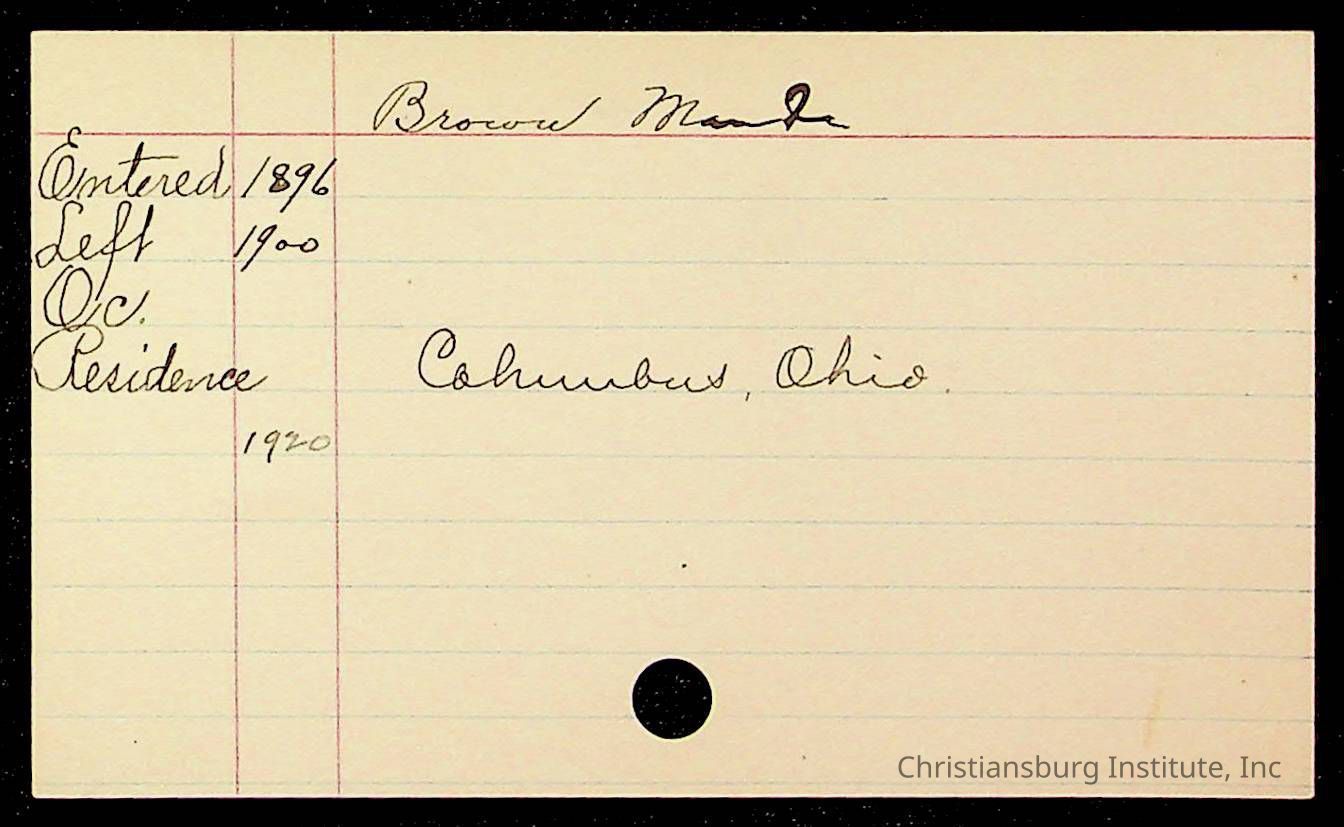 Brown
Entered 1896
Left 1900
Oc.
Residence Columbus, Ohio.
1920
Christiansburg Institute, Inc